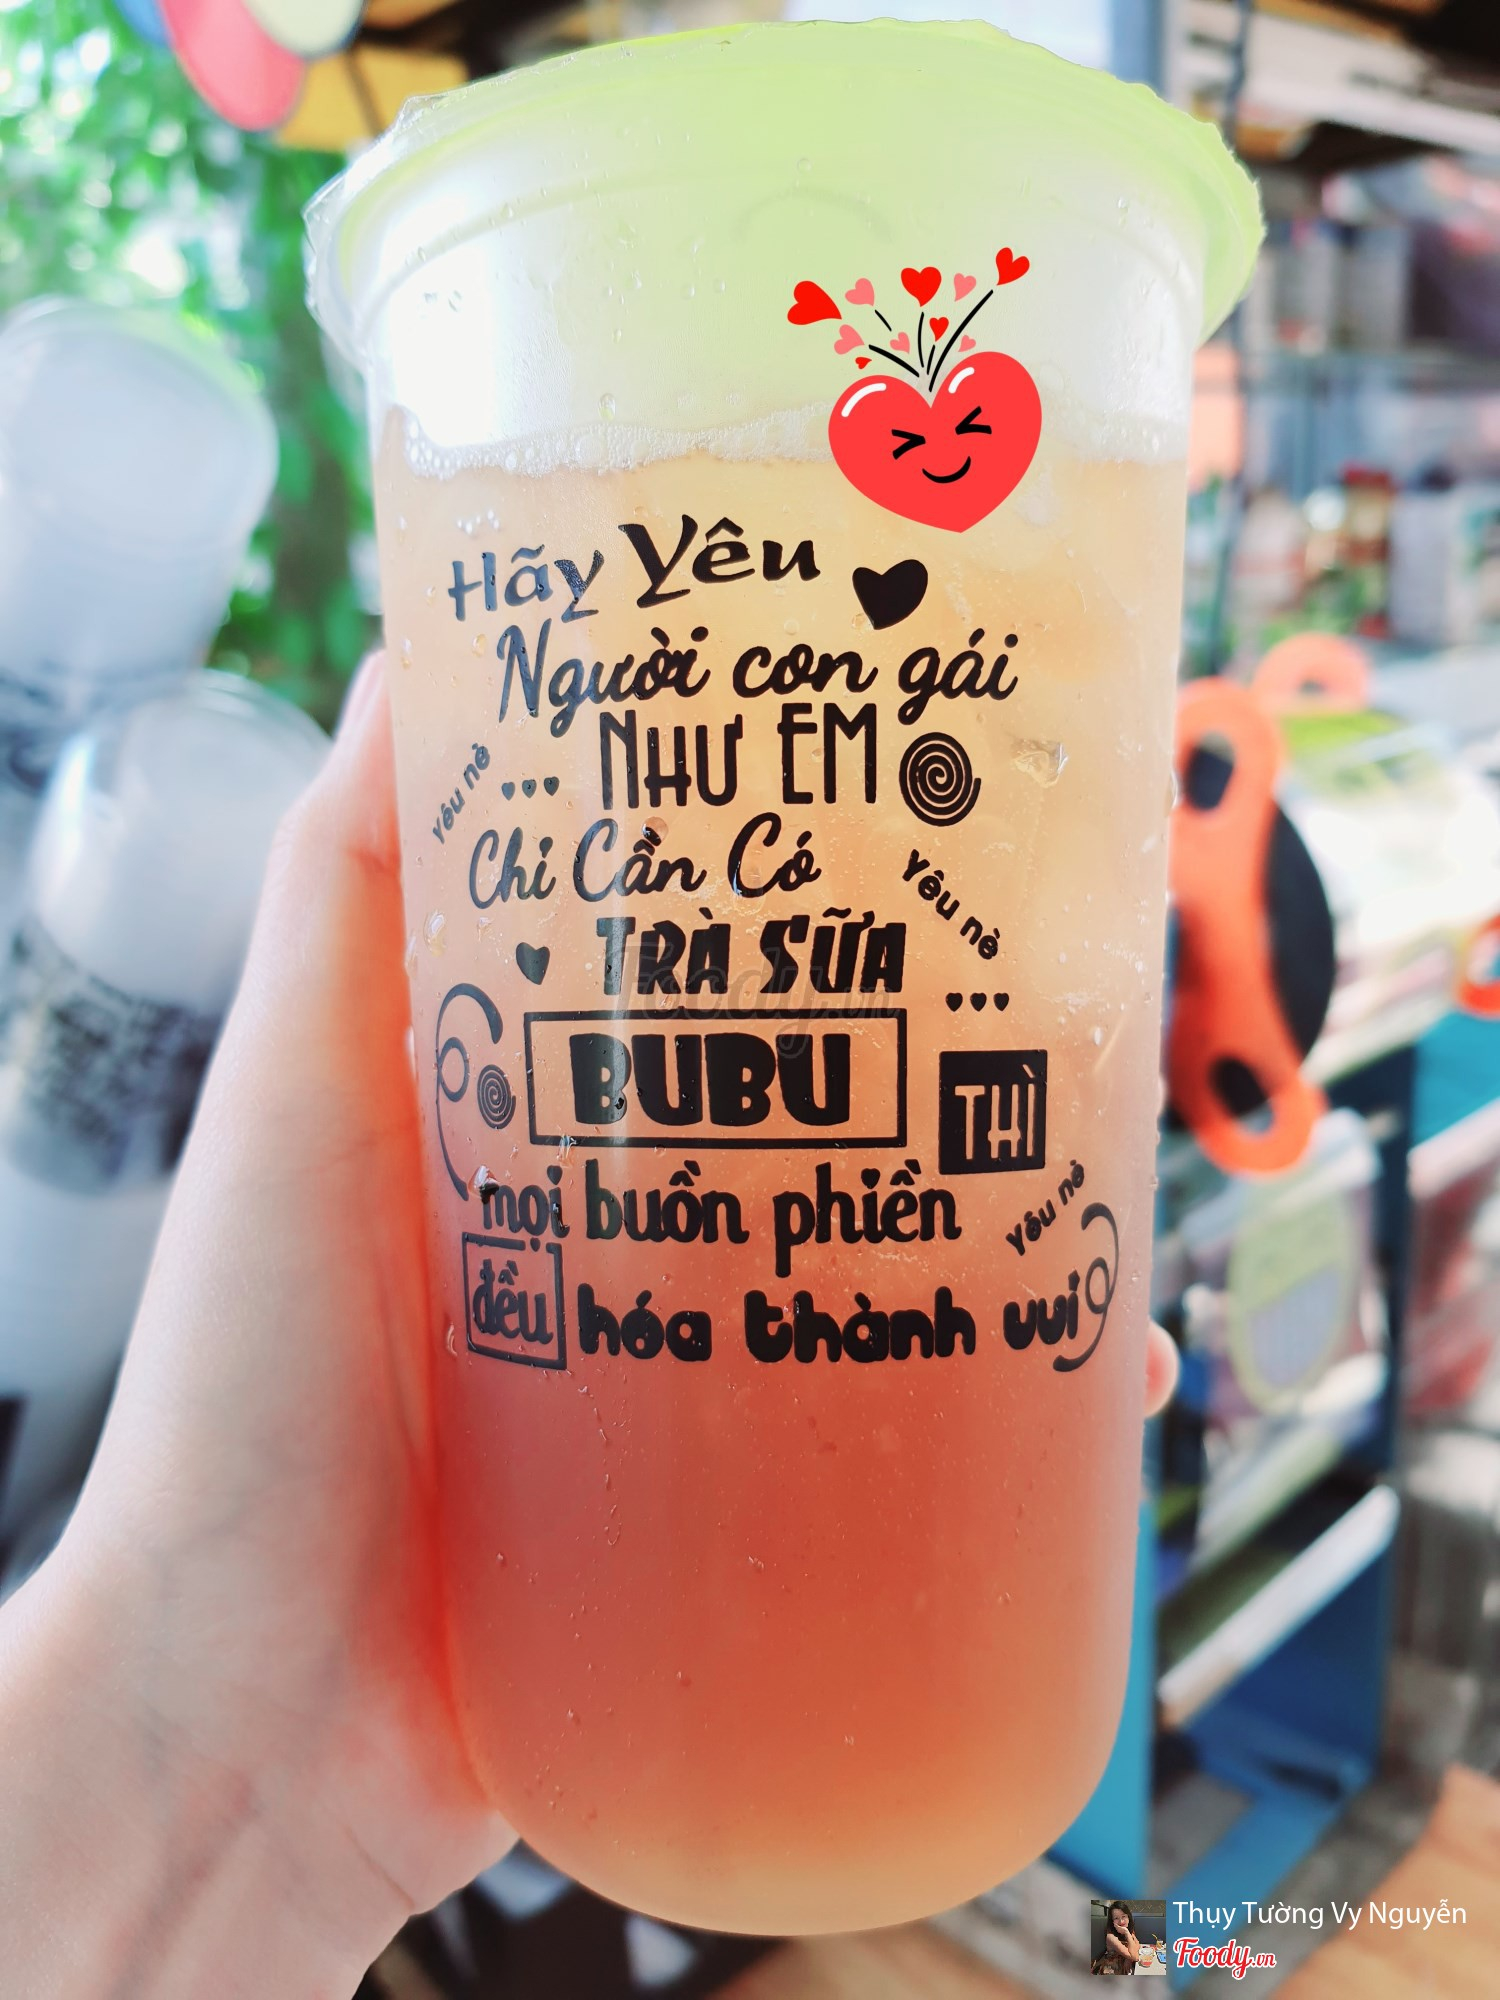 Hãy Yêu
Người con gái
NHƯ EM
Yêu nè
Chỉ Cần Có
Yêu nè
TRÀ SỮA
Foody.vn
BUBU
THÌ
mọi buồn phiền
Yêu nè
đều hóa thành vui
Thụy Tường Vy Nguyễn
Foody.vn